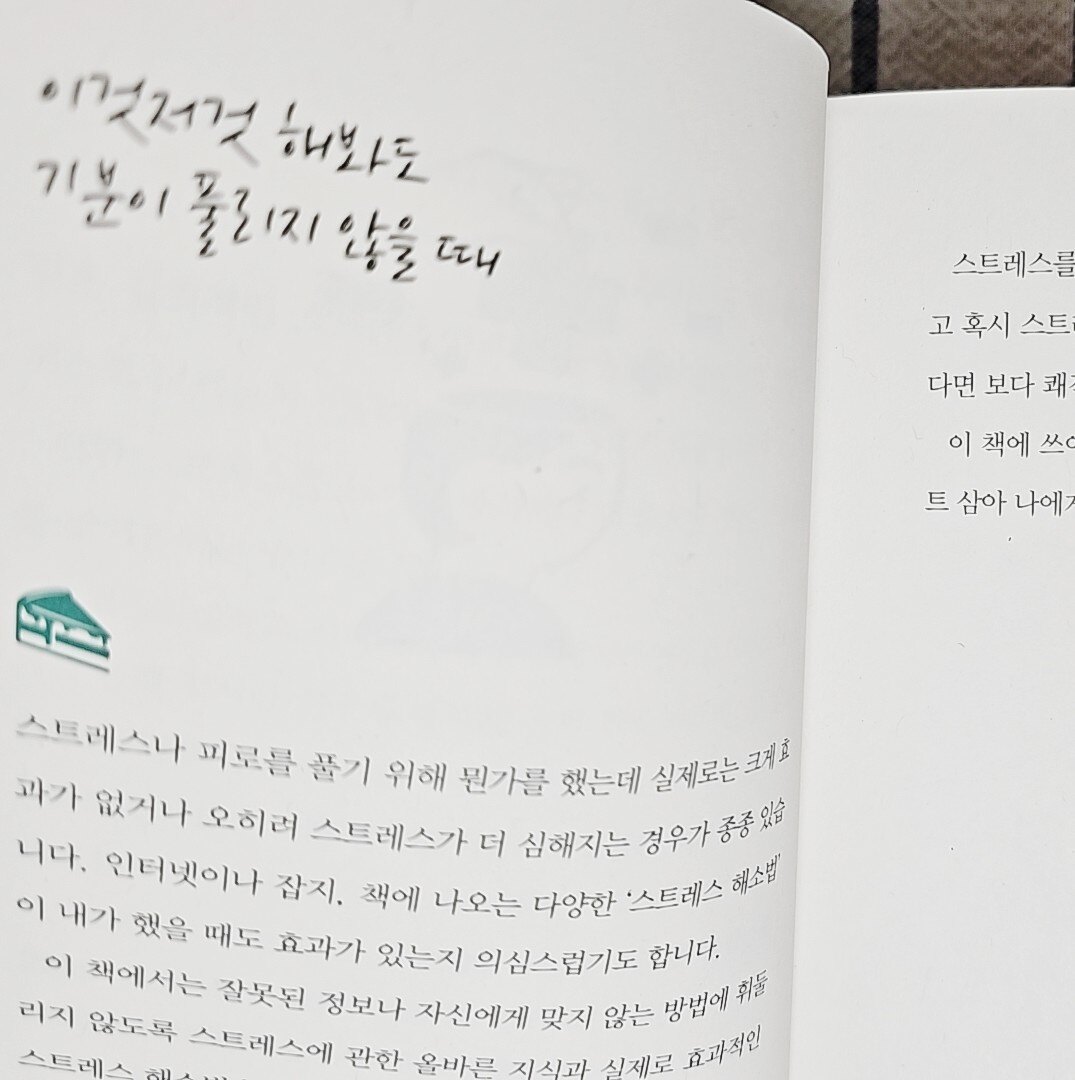 이것저것 해봐도
기분이 풀리지 않을 때
스트레스나 피로를 풀기 위해 뭔가를 했는데 실제로는 크게 효
과가 없거나 오히려 스트레스가 더 심해지는 경우가 종종 있습
니다. 인터넷이나 잡지. 책에 나오는 다양한 ‘스트레스 해소법’
이 내가 했을 때도 효과가 있는지 의심스럽기도 합니다.
이 책에서는 잘못된 정보나 자신에게 맞지 않는 방법에 휘둘
리지 않도록 스트레스에 관한 올바른 지식과 실제로 효과적인
스트레스
스트레스를
고 혹시
다면 보다
이 책에
트 삼아